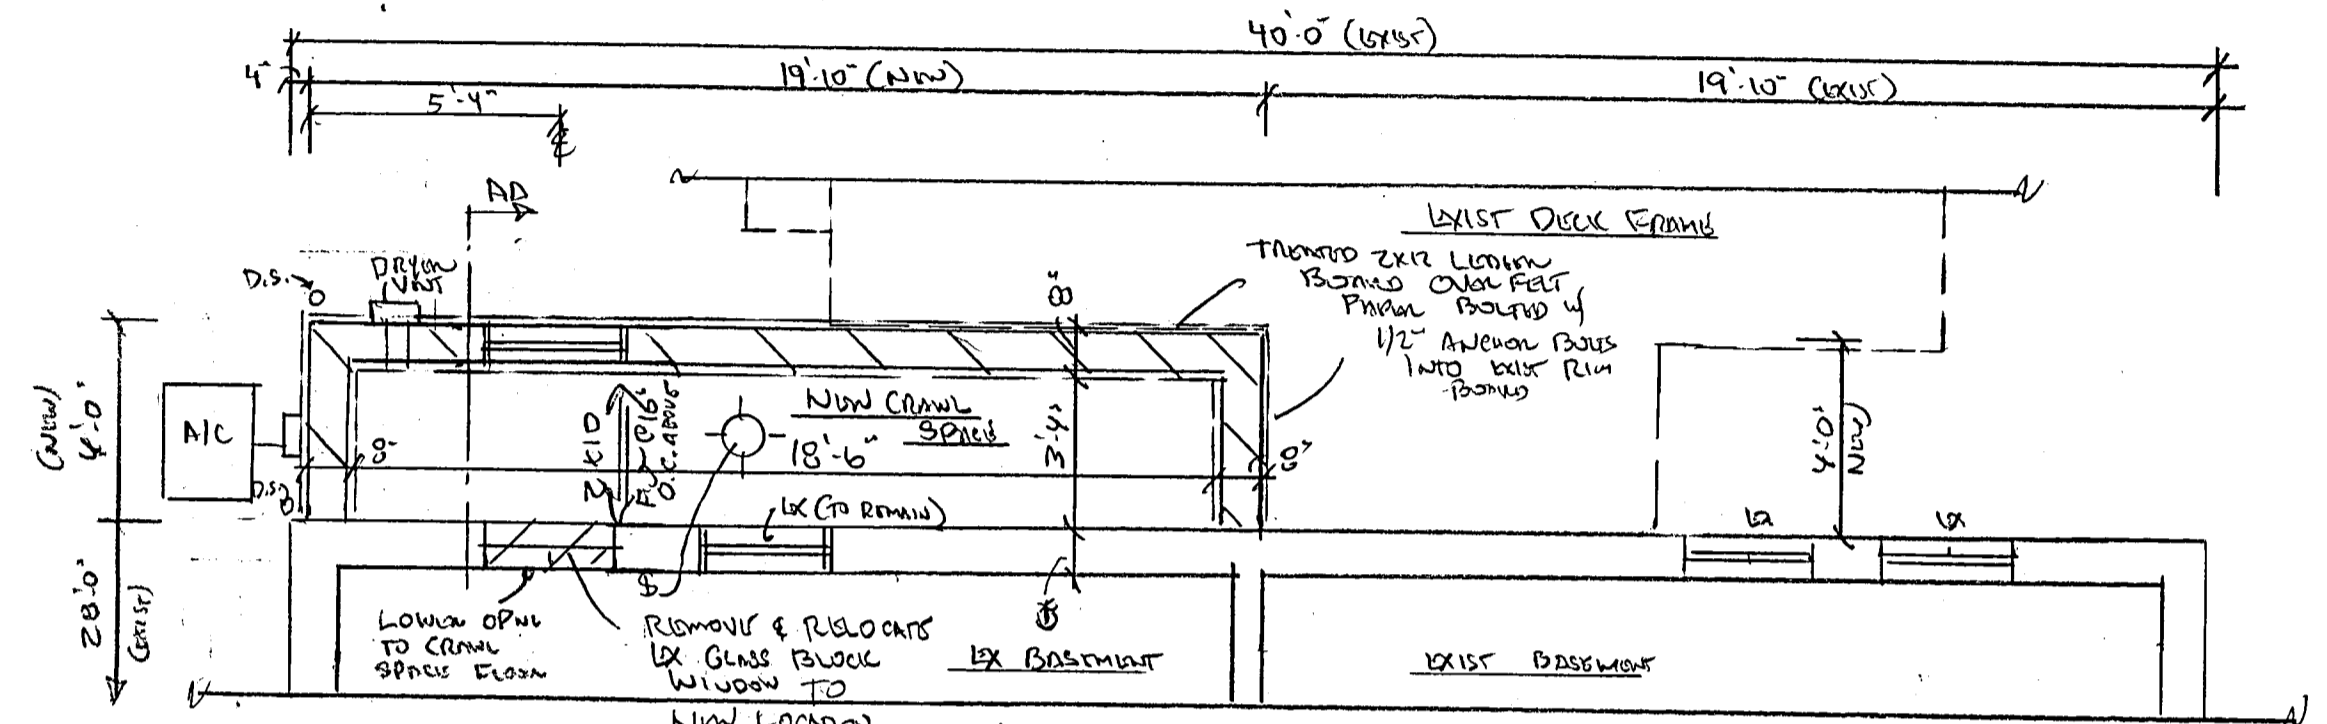 40'-0" (EXIST)
4"
19'-10" (NEW)
19'-10" (EXIST)
5'-4"
℄
AD
EXIST DECK FRAME
D.S.
DRYER
VENT
8"
TREATED 2X12 LEDGER
BOARD OVER FELT
PAPER BOLTED W/
1/2" ANCHOR BOLTS
INTO EXIST RIM
BOARD
(NEW)
4'-0"
A/C
8"
2X10
F.J. @ 16"
O.C. ABOVE
NEW CRAWL
SPACE
18'-6"
3'-4"
8"
4'-0"
(NEW)
D.S.
EX (TO REMAIN)
EX
EX
28'-0"
(EXIST)
$
LOWER OPNG
TO CRAWL
SPACE FLOOR
REMOVE & RELOCATE
EX GLASS BLOCK
WINDOW TO
NEW LOCATION
EX BASEMENT
EXIST BASEMENT